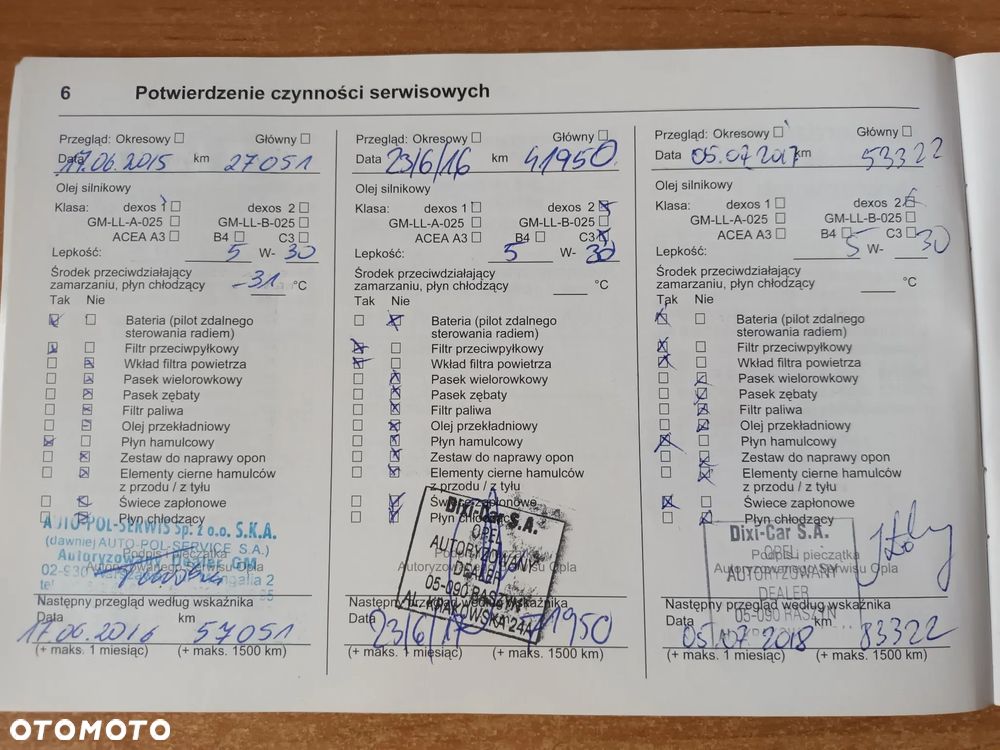 6 Potwierdzenie czynności serwisowych
Przegląd: Okresowy Główny
Data 17.06.2015 km 27051
Olej silnikowy
Klasa: dexos 1 dexos 2
GM-LL-A-025 GM-LL-B-025
ACEA A3 B4 C3
Lepkość: 5 W- 30
Środek przeciwdziałający
zamarzaniu, płyn chłodzący -31 °C
Tak Nie
Bateria (pilot zdalnego
sterowania radiem)
Filtr przeciwpyłkowy
Wkład filtra powietrza
Pasek wielorowkowy
Pasek zębaty
Filtr paliwa
Olej przekładniowy
Płyn hamulcowy
Zestaw do naprawy opon
Elementy cierne hamulców
z przodu / z tyłu
Świece zapłonowe
Płyn chłodzący
AUTO-POL-SERWIS Sp. z o.o. S.K.A.
(dawniej AUTO-POL-SERVICE S.A.)
Podpis i pieczątka
Autoryzowanego Serwisu Opla
Następny przegląd według wskaźnika
Data km
17.06.2016 57051
(+ maks. 1 miesiąc) (+ maks. 1500 km)
Przegląd: Okresowy Główny
Data 23/6/16 km 41950
Olej silnikowy
Klasa: dexos 1 dexos 2
GM-LL-A-025 GM-LL-B-025
ACEA A3 B4 C3
Lepkość: 5 W- 30
Środek przeciwdziałający
zamarzaniu, płyn chłodzący °C
Tak Nie
Bateria (pilot zdalnego
sterowania radiem)
Filtr przeciwpyłkowy
Wkład filtra powietrza
Pasek wielorowkowy
Pasek zębaty
Filtr paliwa
Olej przekładniowy
Płyn hamulcowy
Zestaw do naprawy opon
Elementy cierne hamulców
z przodu / z tyłu
Świece zapłonowe
Płyn chłodzący
Dixi-Car S.A.
OPEL
AUTORYZOWANY
DEALER
05-090 RASZYN
AL. KRAKOWSKA 24A
Podpis i pieczątka
Autoryzowanego Serwisu Opla
Następny przegląd według wskaźnika
Data km
23/6/17 71950
(+ maks. 1 miesiąc) (+ maks. 1500 km)
Przegląd: Okresowy Główny
Data 05.07.2017 km 53322
Olej silnikowy
Klasa: dexos 1 dexos 2
GM-LL-A-025 GM-LL-B-025
ACEA A3 B4 C3
Lepkość: 5 W- 30
Środek przeciwdziałający
zamarzaniu, płyn chłodzący °C
Tak Nie
Bateria (pilot zdalnego
sterowania radiem)
Filtr przeciwpyłkowy
Wkład filtra powietrza
Pasek wielorowkowy
Pasek zębaty
Filtr paliwa
Olej przekładniowy
Płyn hamulcowy
Zestaw do naprawy opon
Elementy cierne hamulców
z przodu / z tyłu
Świece zapłonowe
Płyn chłodzący
Dixi-Car S.A.
OPEL
Podpis i pieczątka
Autoryzowanego Serwisu Opla
AUTORYZOWANY
DEALER
05-090 RASZYN
Następny przegląd według wskaźnika
Data km
05.07.2018 83322
(+ maks. 1 miesiąc) (+ maks. 1500 km)
OTOMOTO